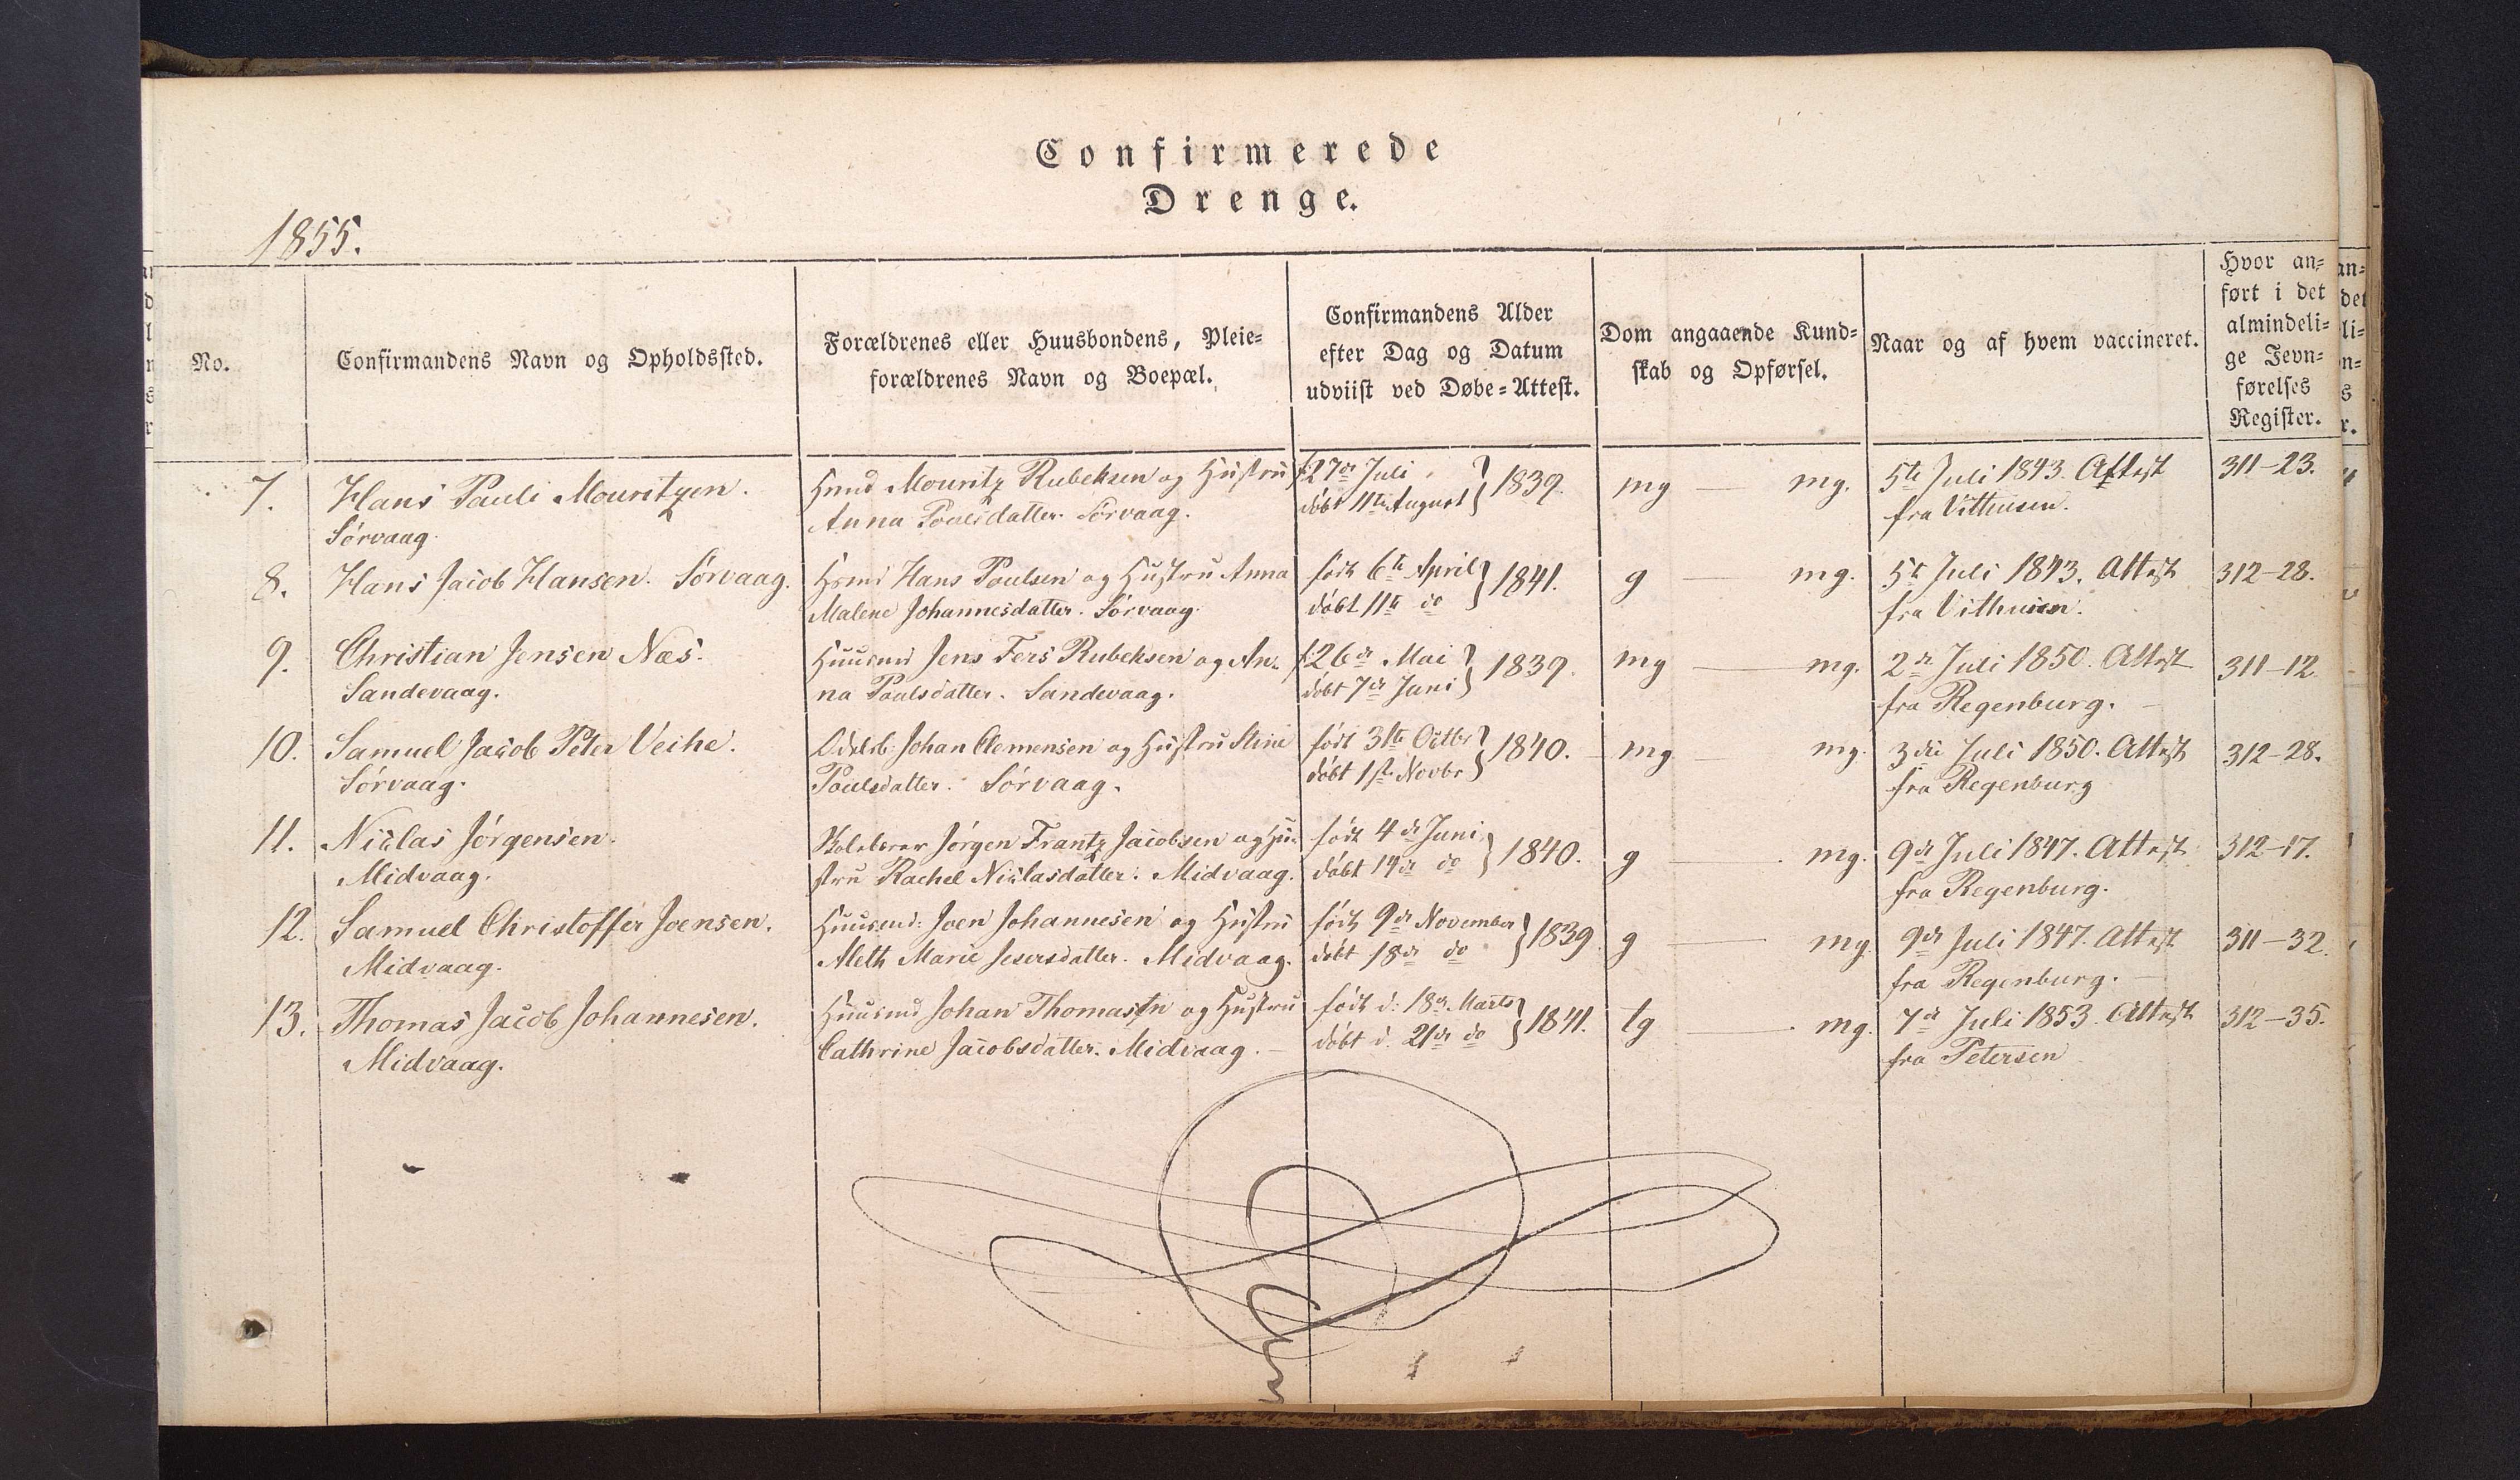 Confirmerede
Drenge.
1855.
No.
Confirmandens Navn og Opholdssted.
Forældrenes eller Huusbondens, Pleie=
forældrenes Navn og Boepæl.
Confirmandens Alder
efter Dag og Datum
udviist ved Døbe=Attest.
Dom angaaende Kund=
skab og Opførsel.
Naar og af hvem vaccineret.
Hvor an=
ført i det
almindeli=
ge Jevn=
førelses
Register.
7.
Hans Pauli Mouritzen.
Sørvaag.
Mouritz Rubeksen og Hustru
Anna Poulsdatter. Sørvaag.
f. 27de Juli
døbt 11te August } 1839.
mg — mg.
5te Juli 1843. Attest
fra Vithusen.
311-23.
8.
Hans Jacob Hansen. Sørvaag.
Hans Poulsen og Hustru Anna
Malene Johannesdatter. Sørvaag.
født 6te April
døbt 11te do } 1841.
g — mg.
5te Juli 1843. Attest
fra Vithusen.
312-28.
9.
Christian Jensen Næs.
Sandevaag.
Huusmd Jens Fers Rubeksen og An-
na Poulsdatter. Sandevaag.
f. 26de Mai
døbt 7de Juni } 1839.
mg — mg.
2de Juli 1850. Attest
fra Regenburg.
311-12.
10.
Samuel Jacob Peter Veihe.
Sørvaag.
Odelsb: Johan Clemensen og Hustru Stine
Poulsdatter. Sørvaag.
født 31te Octbr
døbt 1ste Novbr } 1840.
mg — mg.
3die Juli 1850. Attest
fra Regenburg
312-28.
11.
Niclas Jørgensen.
Midvaag.
Skolelærer Jørgen Frantz Jacobsen og Hu-
stru Rachel Niclasdatter. Midvaag.
født 4de Juni
døbt 14de do } 1840.
g — mg.
9de Juli 1847. Attest
fra Regenburg.
312-17.
12.
Samuel Christoffer Joensen.
Midvaag.
Huusmd: Joen Johannesen og Hustru
Meth Marie Jesersdatter. Midvaag.
født 9de November
døbt 18de do } 1839.
g — mg.
9de Juli 1847. Attest
fra Regenburg.
311-32.
13.
Thomas Jacob Johannesen.
Midvaag.
Huusmd Johan Thomassen og Hustru
Cathrine Jacobsdatter. Midvaag.
født d: 18de Marts
døbt d. 21de do } 1841.
tg — mg.
7de Juli 1853. Attest
fra Petersen
312-35.